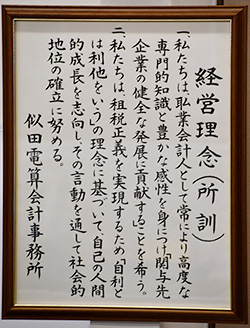 経営理念(所訓)
一、私たちは、職業会計人として常により高度な
専門的知識と豊かな感性を身につけ「関与先
企業の健全な発展に貢献する」ことを希う。
二、私たちは、租税正義を実現するため「自利と
は利他をいう」の理念に基づいて、自己の人間
的成長を志向し、その言動を通して社会的
地位の確立に努める。
似田電算会計事務所